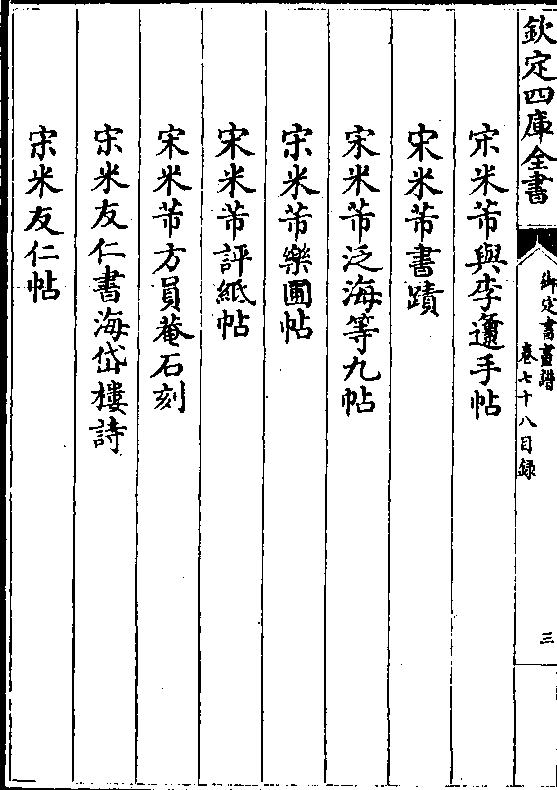 欽定四庫全書
御定書畫譜
卷七十八目録
三
宋米芾與李邕手帖
宋米芾書蹟
宋米芾泛海等九帖
宋米芾樂圃帖
宋米芾評紙帖
宋米芾方員菴石刻
宋米友仁書海岱樓詩
宋米友仁帖